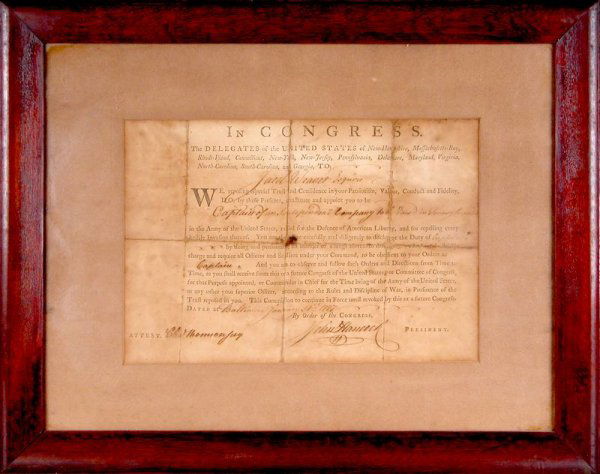 IN CONGRESS.
The DELEGATES of the UNITED STATES of New-Hampshire, Massachusetts-Bay,
Rhode-Island, Connecticut, New-York, New-Jersey, Pennsylvania, Delaware, Maryland, Virginia,
North-Carolina, South-Carolina, and Georgia, TO
Jacob Weaver Esquire
WE, reposing especial Trust and Confidence in your Patriotism, Valour, Conduct and Fidelity,
DO, by these Presents, constitute and appoint you to be
Captain of an Independent Company to be
in the Army of the United States, raised for the Defence of American Liberty, and for repelling every
hostile Invasion thereof. You are therefore carefully and diligently to discharge the Duty of
by doing and performing all manner of Things thereunto belonging. And we do strictly
charge and require all Officers and Soldiers under your Command, to be obedient to your Orders as
Captain And you are to observe and follow such Orders and Directions from Time to
Time, as you shall receive from this or a future Congress of the United States, or Committee of Congress,
for that Purpose appointed, or Commander in Chief for the Time being of the Army of the United States,
or any other your superior Officer, according to the Rules and Discipline of War, in Pursuance of the
Trust reposed in you. This Commission to continue in Force until revoked by this or a future Congress.
DATED at Baltimore January
By Order of the CONGRESS,
ATTEST. Cha Thomson secy John Hancock PRESIDENT.